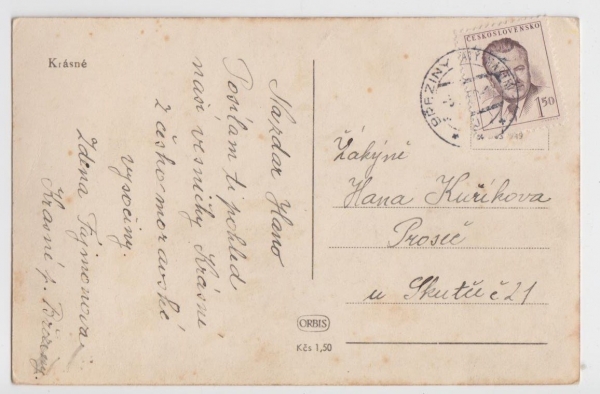 Krásné
Nazdar Hano
Posílám ti pohled
naší vesničky Krásné
z českomoravské
vysočiny.
Zdena Fajmonova
Krásné p.
ČESKOSLOVENSKO
1 50
Žákyně
Hana Kuříkova
Proseč
u Skutče č 21
ORBIS
Kčs 1,50